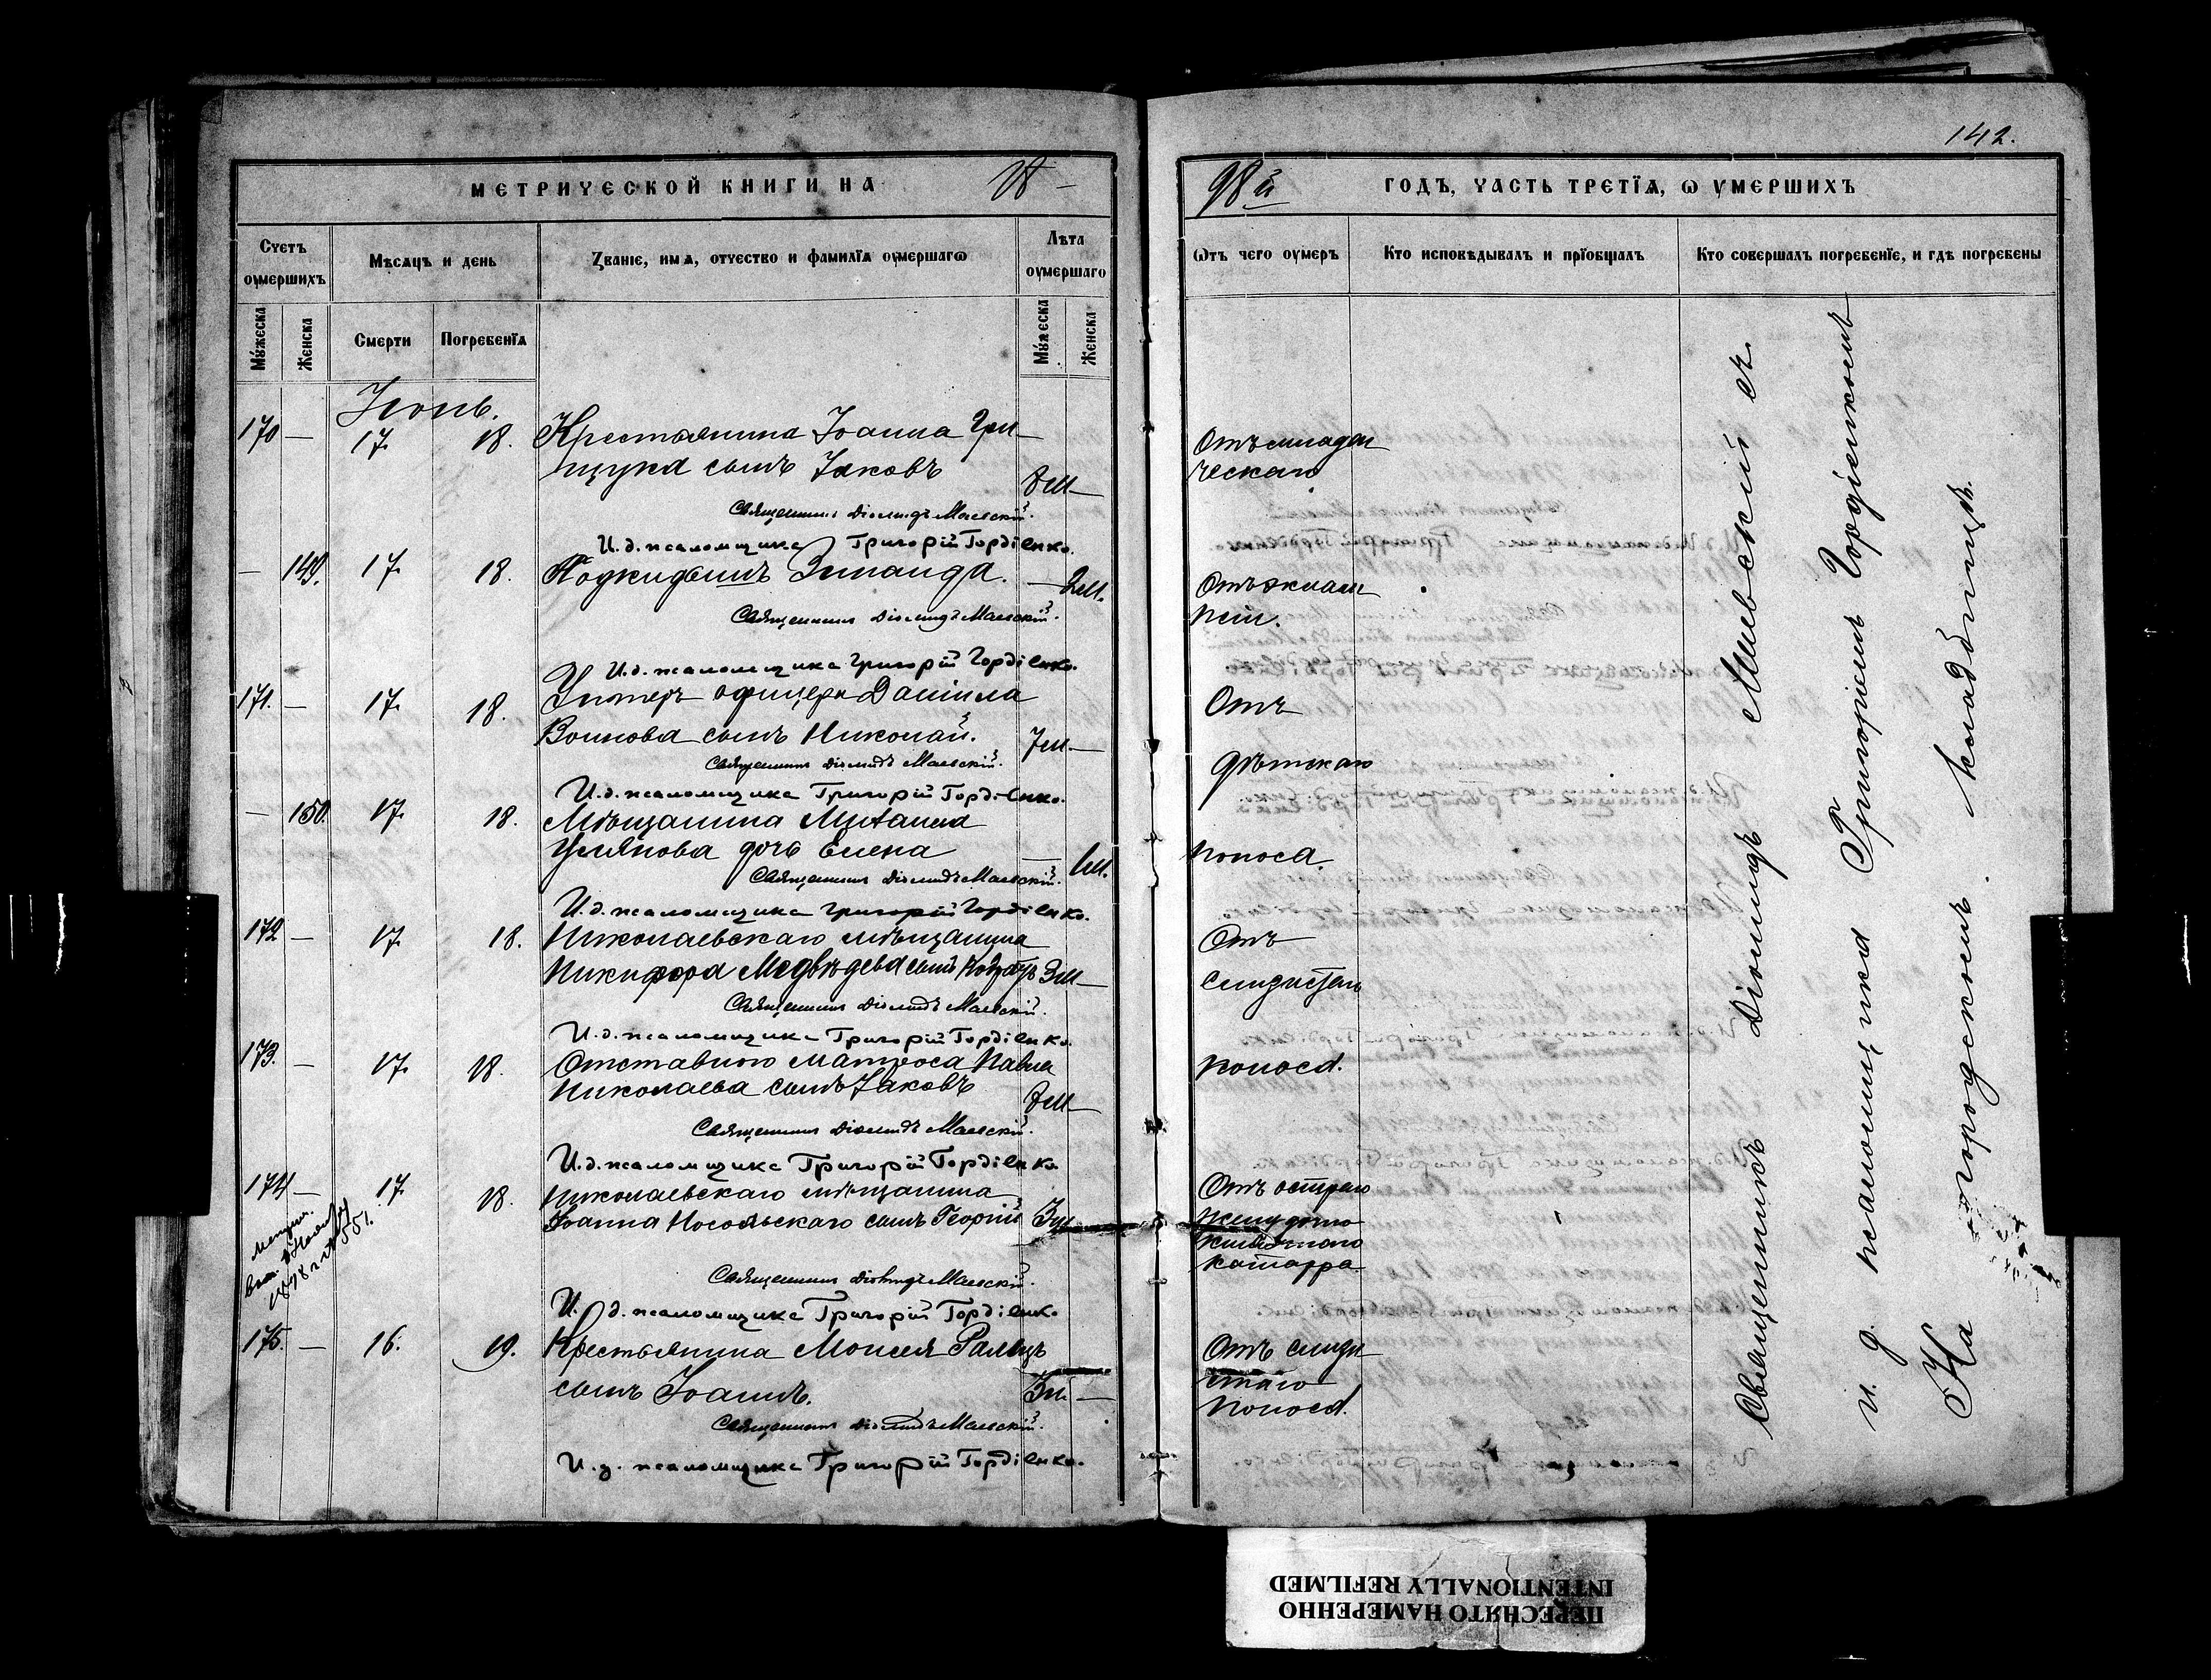 142.
МЕТРИЧЕСКОЙ КНИГИ НА 18 –
98й ГОДЪ, ЧАСТЬ ТРЕТЇѦ, Ѡ ОУМЕРШИХЪ
Счетъ оумершихъ
Мѣсѧцъ и день
Званіе, имѧ, отчество и фамилїѧ оумершагѡ
Лѣта оумершаго
Ѿтъ чего оумеръ
Кто исповѣдывалъ и прїобщалъ
Кто совершалъ погребенїе, и гдѣ погребены
Мужеска
Женска
Смерти
Погребенїѧ
Мужеска
Женска
Іюнь.
170 — 17. 18. Крестьянина Іоанна Гри-
щука сынъ Іаковъ
7 м —
Отъ младен
ческаго
Священникъ Діомидъ Маевскій.
И. д. псаломщика Григорій Гордіенко.
— 149. 17. 18. Подкидышъ Зинаида. — 2 м.
Отъ эклам
псіи.
Священникъ Діомидъ Маевскій.
И. д. псаломщика Григорій Гордіенко.
171. — 17. 18. Унтеръ офицера Даніила
Воинова сынъ Николай. 7 м —
Отъ
дѣтскаго
Священникъ Діомидъ Маевскій.
И. д. псаломщика Григорій Гордіенко.
— 150. 17. 18. Мѣщанина
Ульянова дочь Елена — 1 м.
поноса.
Священникъ Діомидъ Маевскій.
И. д. псаломщика Григорій Гордіенко.
172 — 17. 18. Николаевскаго мѣщанина
Никифора Медвѣдева сынъ 3 м —
Отъ
слизистаго
Священникъ Діомидъ Маевскій.
И. д. псаломщика Григорій Гордіенко.
173. — 17. 18. Отставного матроса Павла
Николаева сынъ Іаковъ 7 м —
поноса.
Священникъ Діомидъ Маевскій.
И. д. псаломщика Григорій Гордіенко.
174 — 17. 18. Николаевскаго мѣщанина
Іоанна Носольскаго сынъ Георгій 3 м
Отъ остраго
желудочно
кишечнаго
катарра.
1898 г. № 551.
Священникъ Діомидъ Маевскій.
И. д. псаломщика Григорій Гордіенко.
175. — 16. 19. Крестьянина Моисея
сынъ Іоаннъ. 3 м. —
Отъ слизи
стаго
поноса.
Священникъ Діомидъ Маевскій.
И. д. псаломщика Григорій Гордіенко.
Священникъ Діомидъ Маевскій съ
и. д. псаломщика Григоріемъ Гордіенкомъ
На городскомъ кладбищѣ.
ПЕРЕСНЯТО НАМЕРЕННО
INTENTIONALLY REFILMED